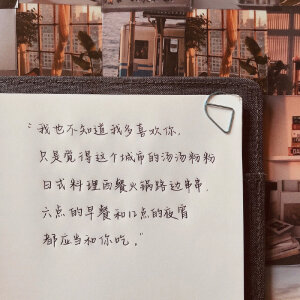 “我也不知道我多喜欢你,
只是觉得这个城市的汤汤粉粉
日式料理西餐火锅路边串串
六点的早餐和12点的夜宵
都应当和你吃。”